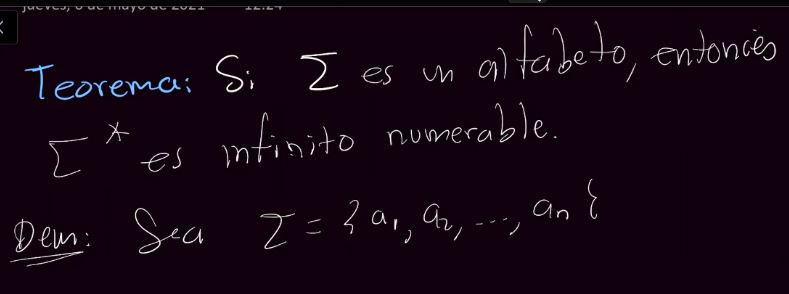 jueves, 6 de mayo de 2021 12:24
Teorema: Si Σ es un alfabeto, entonces
Σ* es infinito numerable.
Dem: Sea Σ = {a₁, a₂, ..., aₙ}